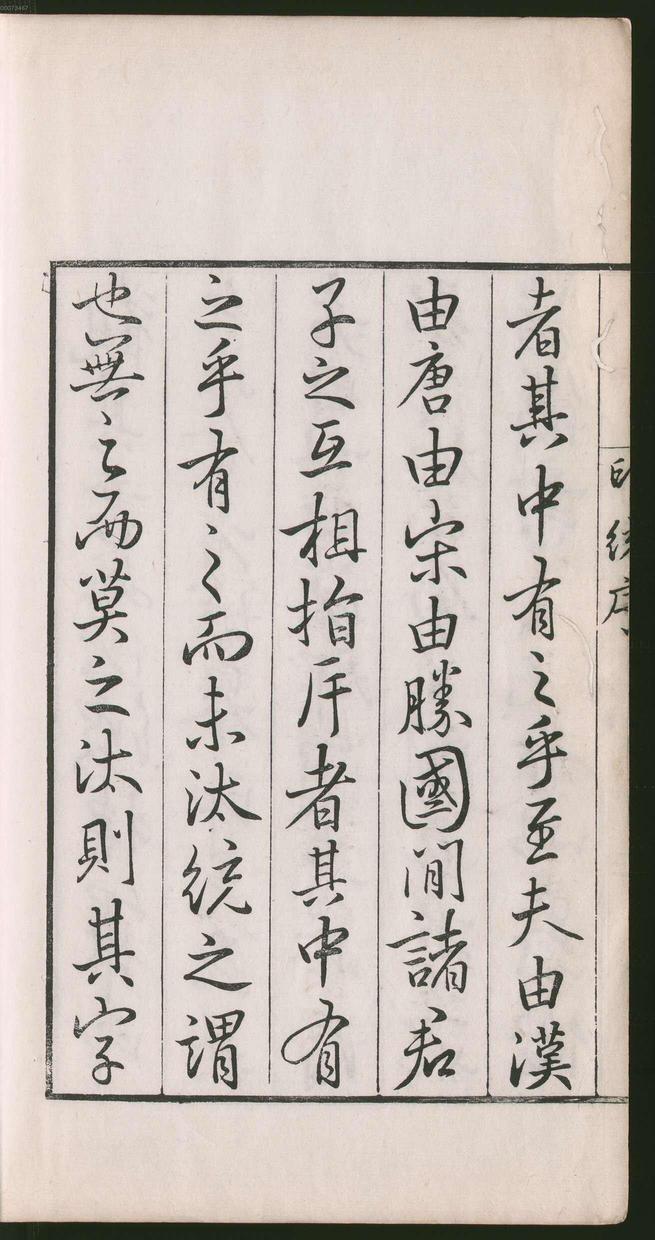 者其中有之乎至夫由漢
由唐由宋由勝國間諸君
子之互相指斥者其中有
之乎有之而未汰統之謂
也無之而莫之汰則其字
印統序
00073467